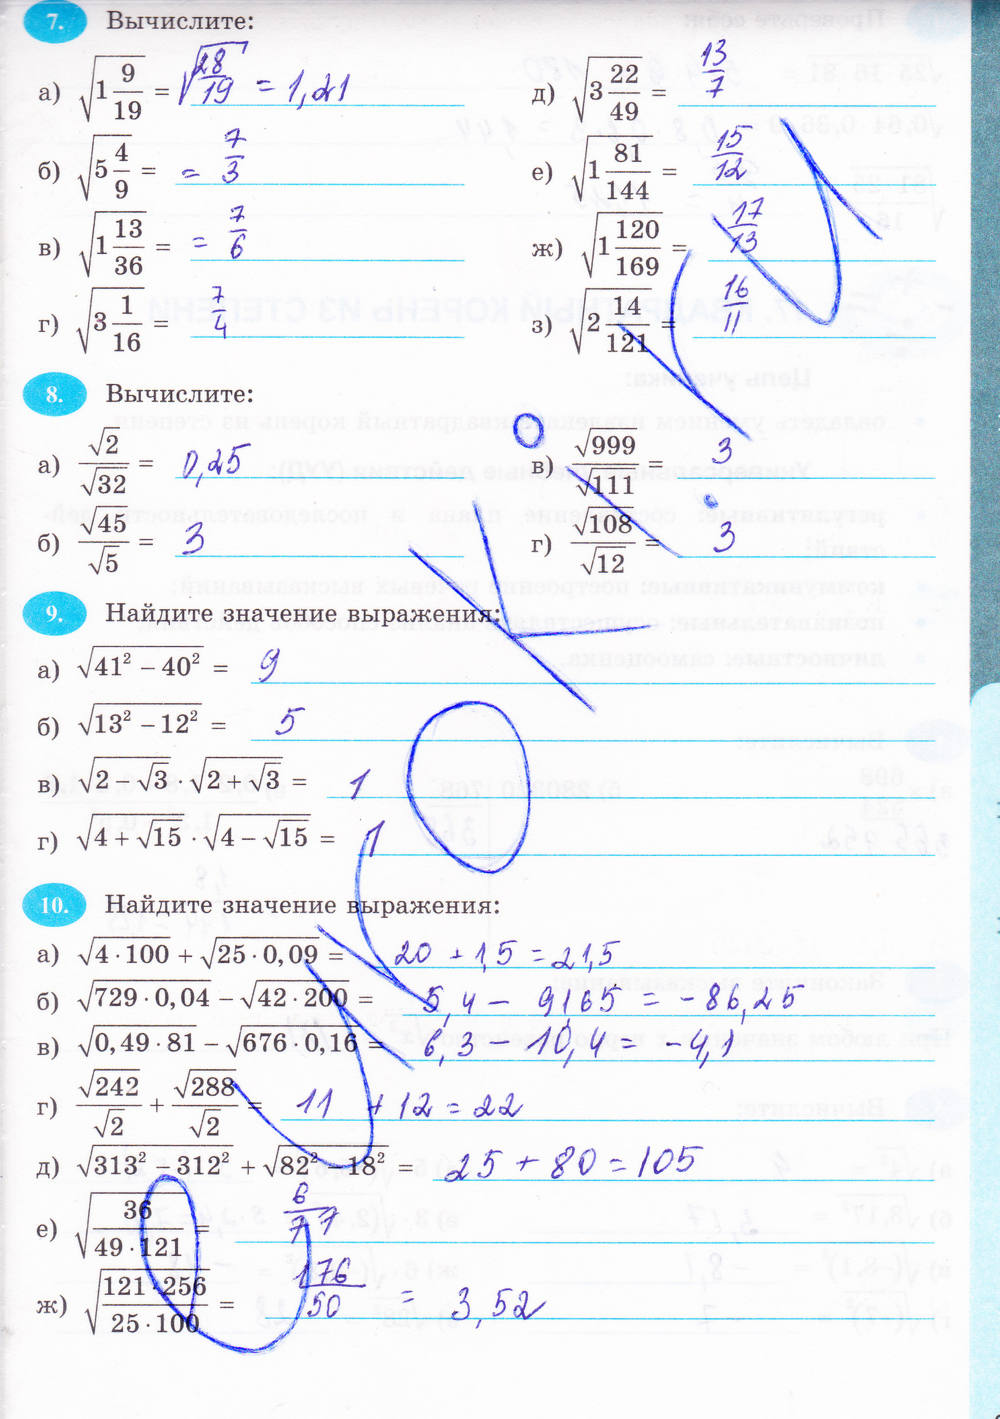 7. Вычислите:
а) √(1 9/19) = √(28/19) = 1,21
д) √(3 22/49) = 13/7
б) √(5 4/9) = = 7/3
е) √(1 81/144) = 15/12
в) √(1 13/36) = = 7/6
ж) √(1 120/169) = 17/13
г) √(3 1/16) = 7/4
з) √(2 14/121) = 16/11
8. Вычислите:
а) √2/√32 = 0,25
в) √999/√111 = 3
б) √45/√5 = 3
г) √108/√12 = 3
9. Найдите значение выражения:
а) √(41² − 40²) = 9
б) √(13² − 12²) = 5
в) √(2 − √3) · √(2 + √3) = 1
г) √(4 + √15) · √(4 − √15) = 1
10. Найдите значение выражения:
а) √(4 · 100) + √(25 · 0,09) = 20 + 1,5 = 21,5
б) √(729 · 0,04) − √(42 · 200) = 5,4 − 9165 = −86,25
в) √(0,49 · 81) − √(676 · 0,16) = 6,3 − 10,4 = −4,1
г) √242/√2 + √288/√2 = 11 + 12 = 22
д) √(313² − 312²) + √(82² − 18²) = 25 + 80 = 105
е) √(36/(49 · 121)) = 6/77
ж) √((121 · 256)/(25 · 100)) = 176/50 = 3,52